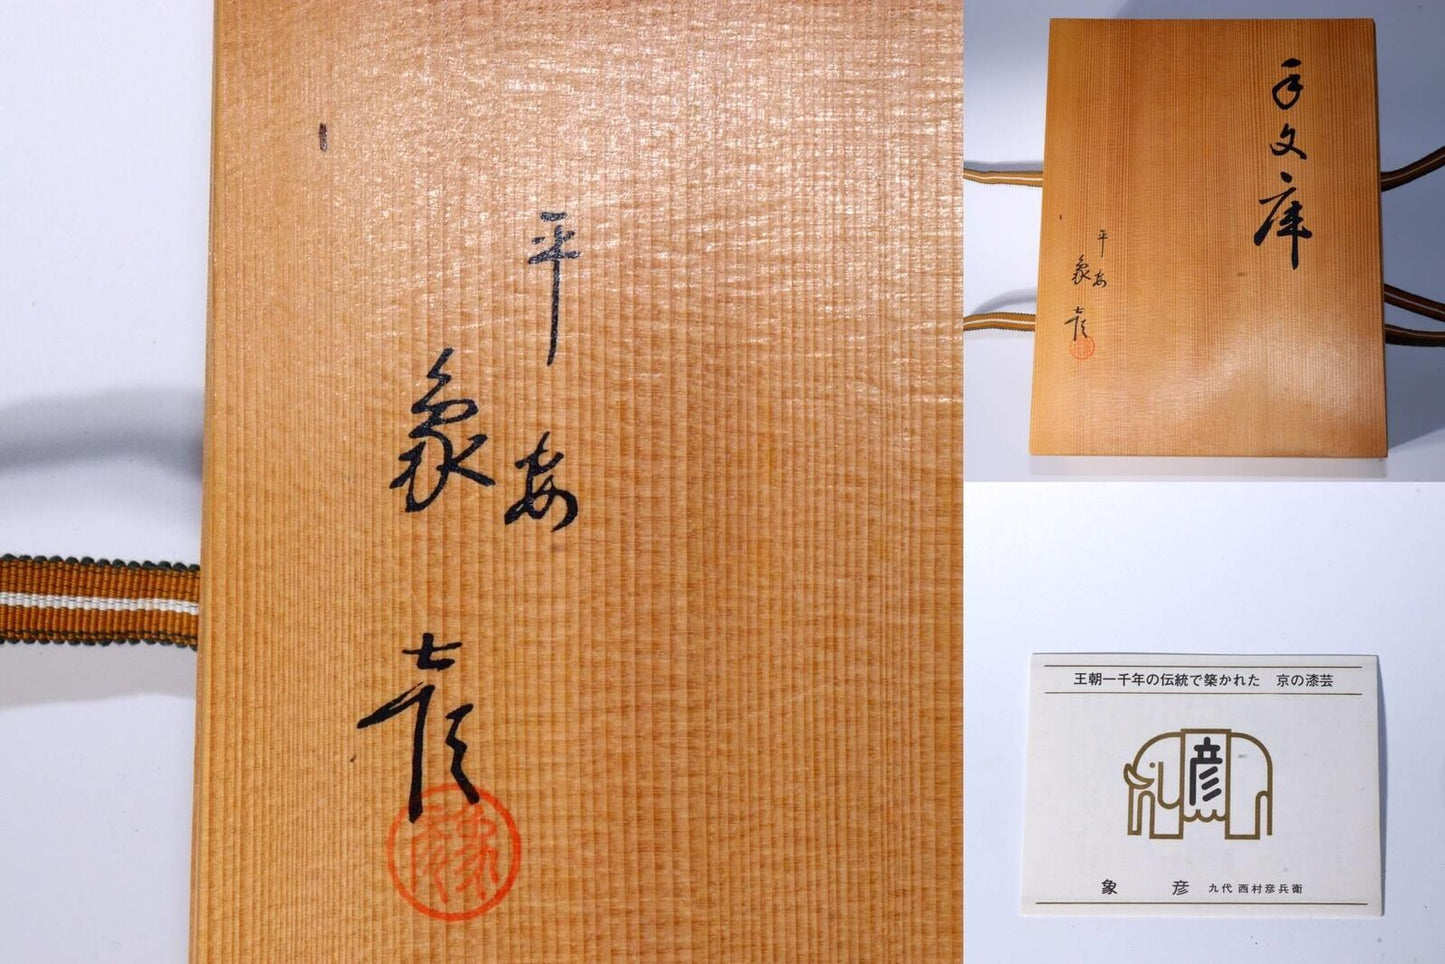 平安
象彦
手文庫
平安
象彦
王朝一千年の伝統で築かれた 京の漆芸
彦
象 彦 九代 西村彦兵衛